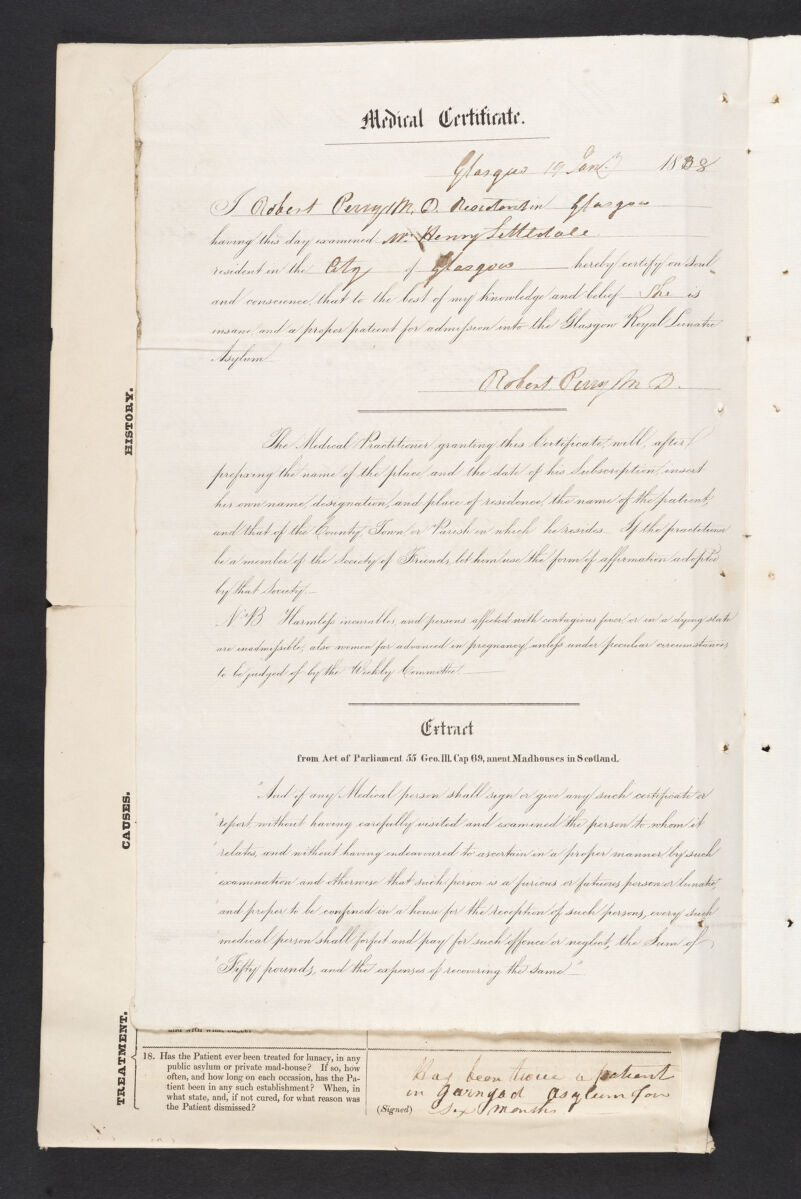 Medical Certificate.
Glasgow 19 Jany 1838
I Robert Perry M. D. Resident in Glasgow
having this day examined Mr Henry Littledale
resident in the City of Glasgow hereby certify on soul
and conscience, that to the best of my knowledge and belief She is
insane and a proper patient for admission into the Glasgow Royal Lunatic
Asylum
Robert Perry M D.
The Medical Practitioner granting this Certificate, will, after
prefixing the name of the place and the date of his Subscription, insert
his own name, designation, and place of residence, the name of the patient,
and that of the County, Town or Parish in which he resides. If the practitioner
be a member of the Society of Friends, let him use the form of affirmation adopted
by that Society.—
N.B. Harmless incurables, and persons affected with contagious fever or in a dying state
are inadmissible, also women far advanced in pregnancy, unless under peculiar circumstances,
to be judged of by the Weekly Committee.
Extract
from Act of Parliament 55 Geo. III. Cap 69, anent Madhouses in Scotland.
"And if any Medical person shall sign or give any such certificate or
"report, without having carefully visited and examined the person to whom it
"relates, and without having endeavoured to ascertain in a proper manner by such
"examination and otherwise that such person is a furious or fatuous person or lunatic,
"and proper to be confined in a house for the reception of such persons, every such
"medical person shall forfeit and pay for such offence or neglect, the Sum of
"Fifty pounds, and the expenses of recovering the same"
HISTORY.
CAUSES.
TREATMENT.
18. Has the Patient ever been treated for lunacy, in any
public asylum or private mad-house? If so, how
often, and how long on each occasion, has the Pa-
tient been in any such establishment? When, in
what state, and, if not cured, for what reason was
the Patient dismissed?
Has been twice a patient
in Garngad asylum for
(Signed) six months